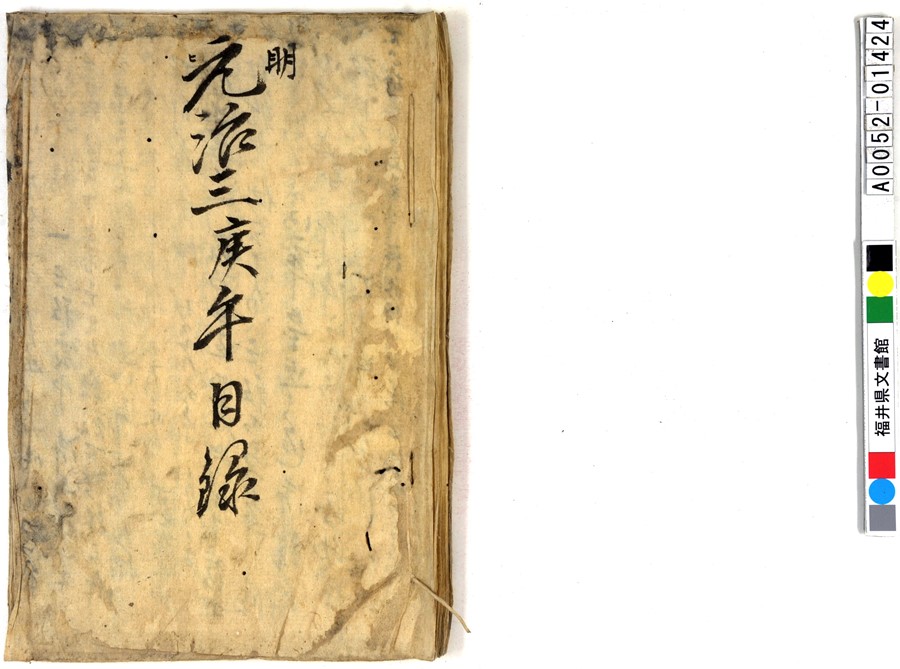 明
元治三庚午 目録
ヒ
A0052-01424
福井県文書館